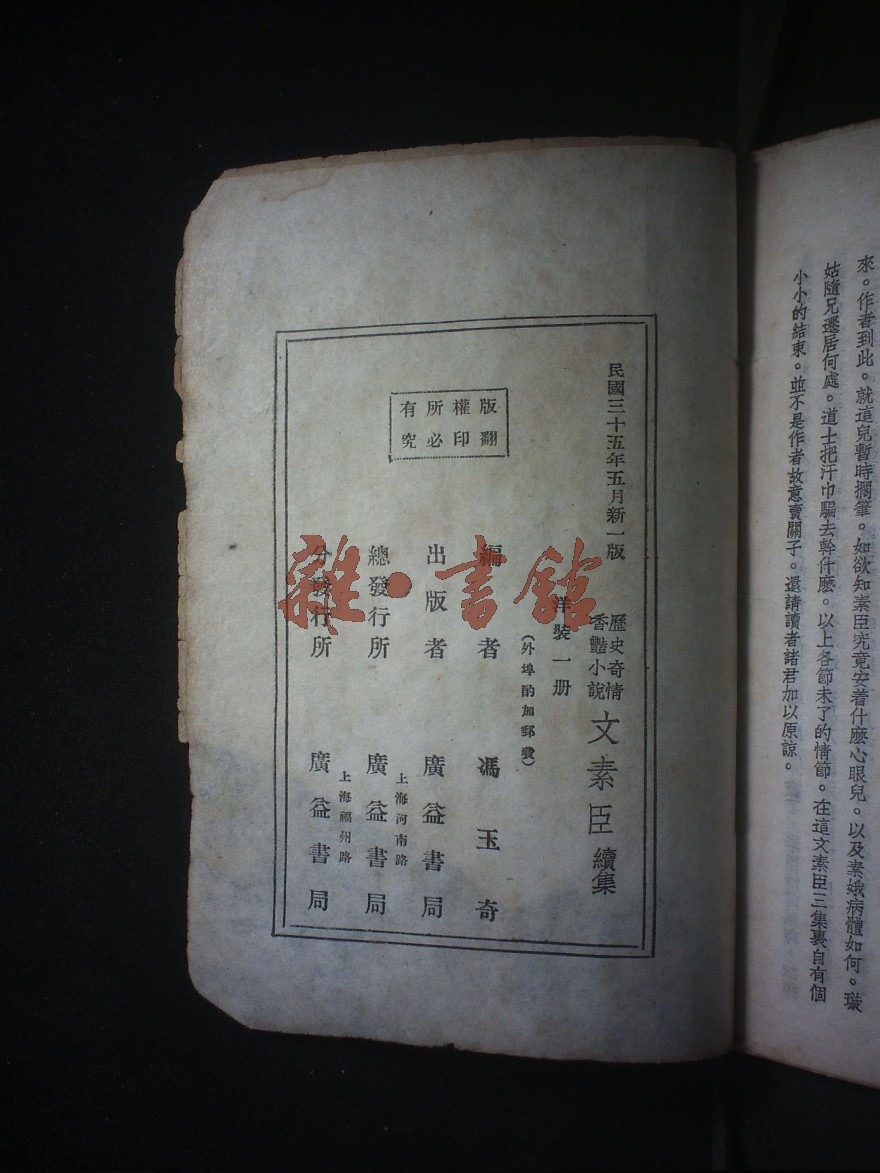 來。作者到此。就這兒暫時擱筆。如欲知素臣究竟安着什麼心眼兒。以及素娥病體如何。璇
姑隨兄遷居何處。道士把汗巾騙去幹什麽。以上各節未了的情節。在這文素臣三集裏自有個
小小的結束。並不是作者故意賣關子。還請讀者諸君加以原諒。
民國三十五年五月新一版
歷史奇情
香艷小說
文素臣續集
洋裝一册
(外埠酌加郵費)
編者 馮玉奇
出版者 廣益書局
上海河南路
總發行所 廣益書局
上海福州路
分發行所 廣益書局
版權所有
翻印必究
雜·書館